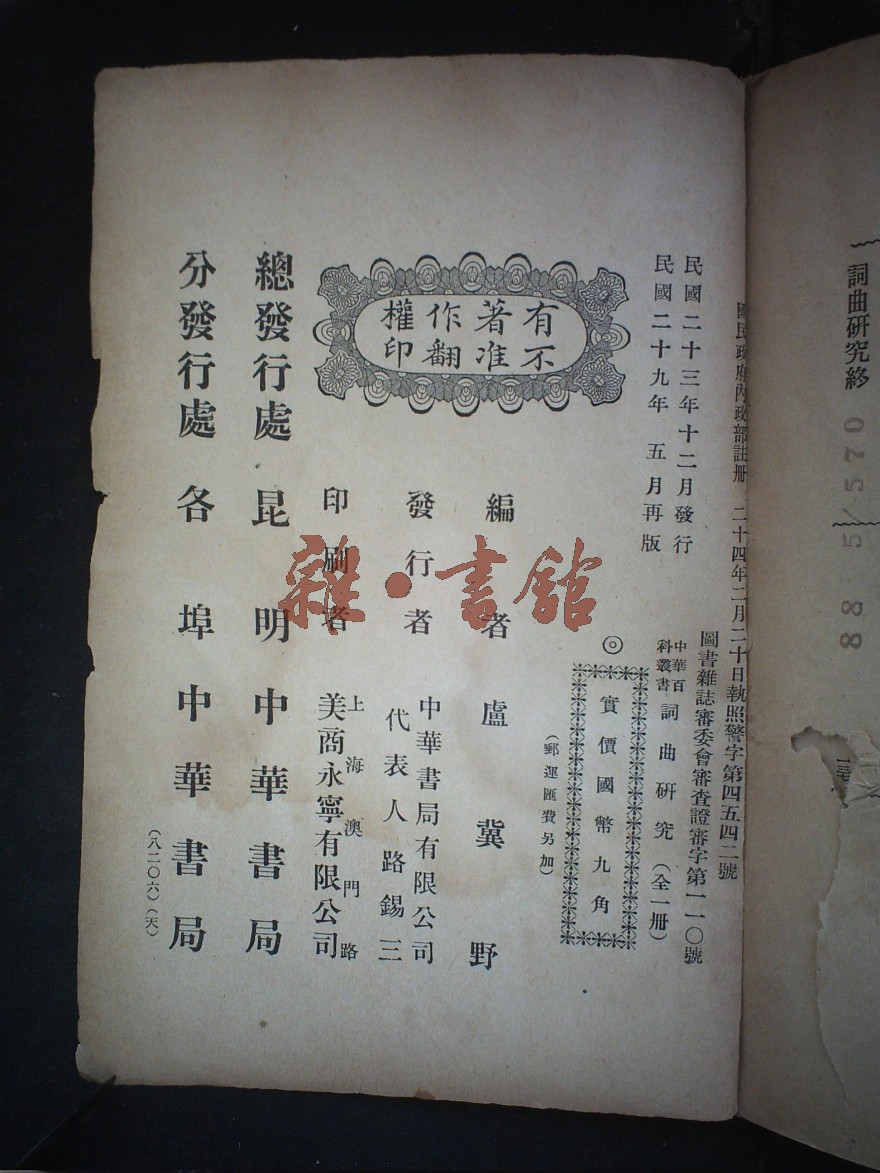 詞曲研究終
88 5/570
國民政府內政部註册 二十四年二月二十日執照警字第四五四二號
圖書雜誌審委會審查證審字第一一〇號
民國二十三年十二月發行
民國二十九年 五月再版
中華百科叢書 詞曲研究(全一册)
◎ 實價國幣九角
(郵運匯費另加)
有著作權
不准翻印
編者 盧冀野
發行者 中華書局有限公司
代表人路錫三
印刷者 上海澳門路
美商永寧有限公司
總發行處 昆明中華書局
分發行處 各埠中華書局
(八二〇六)(天)
雜·書館